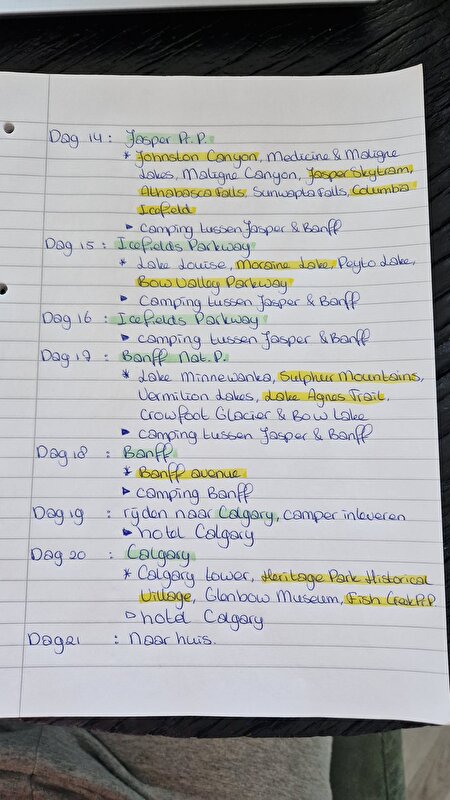 Dag 14 : Jasper Pr. P.
* Johnston Canyon, Medicine & Maligne
Lakes, Maligne Canyon, Jasper Skytram,
Athabasca Falls, Sunwapta Falls, Columbia
Icefield
▶ camping tussen Jasper & Banff
Dag 15 : Icefields Parkway
* Lake Louise, Moraine Lake, Peyto Lake,
Bow Valley Parkway
▶ camping tussen Jasper & Banff
Dag 16 : Icefields Parkway
▶ camping tussen Jasper & Banff
Dag 17 : Banff Nat. P.
* Lake Minnewanka, Sulphur Mountains,
Vermilion Lakes, Lake Agnes Trail,
Crowfoot Glacier & Bow Lake
▶ camping tussen Jasper & Banff
Dag 18 : Banff
* Banff avenue
▶ camping Banff
Dag 19 : rijden naar Calgary, camper inleveren
▶ hotel Calgary
Dag 20 : Calgary
* Calgary Tower, Heritage Park Historical
Village, Glenbow Museum, Fish Creek P.P
▷ hotel Calgary
Dag 21 : Naar huis.